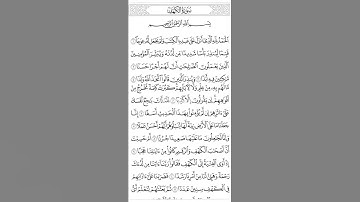 سُورَةُ الكَهْفِ
بِسْمِ اللَّهِ الرَّحْمَٰنِ الرَّحِيمِ
الْحَمْدُ لِلَّهِ الَّذِي أَنزَلَ عَلَىٰ عَبْدِهِ الْكِتَٰبَ وَلَمْ يَجْعَل لَّهُ عِوَجَا ١
قَيِّمًا لِّيُنذِرَ بَأْسًا شَدِيدًا مِّن لَّدُنْهُ وَيُبَشِّرَ الْمُؤْمِنِينَ
الَّذِينَ يَعْمَلُونَ الصَّٰلِحَٰتِ أَنَّ لَهُمْ أَجْرًا حَسَنًا ٢
مَّٰكِثِينَ فِيهِ أَبَدًا ٣ وَيُنذِرَ الَّذِينَ قَالُوا اتَّخَذَ اللَّهُ وَلَدًا ٤
مَّا لَهُم بِهِ مِنْ عِلْمٍ وَلَا لِءَابَآئِهِمْ كَبُرَتْ كَلِمَةً تَخْرُجُ مِنْ
أَفْوَٰهِهِمْ إِن يَقُولُونَ إِلَّا كَذِبًا ٥ فَلَعَلَّكَ بَٰخِعٌ نَّفْسَكَ
عَلَىٰ ءَاثَٰرِهِمْ إِن لَّمْ يُؤْمِنُوا بِهَٰذَا الْحَدِيثِ أَسَفًا ٦ إِنَّا
جَعَلْنَا مَا عَلَى الْأَرْضِ زِينَةً لَّهَا لِنَبْلُوَهُمْ أَيُّهُمْ أَحْسَنُ عَمَلًا ٧
وَإِنَّا لَجَٰعِلُونَ مَا عَلَيْهَا صَعِيدًا جُرُزًا ٨ أَمْ حَسِبْتَ
أَنَّ أَصْحَٰبَ الْكَهْفِ وَالرَّقِيمِ كَانُوا مِنْ ءَايَٰتِنَا عَجَبًا ٩
إِذْ أَوَى الْفِتْيَةُ إِلَى الْكَهْفِ فَقَالُوا رَبَّنَا ءَاتِنَا مِن لَّدُنكَ
رَحْمَةً وَهَيِّئْ لَنَا مِنْ أَمْرِنَا رَشَدًا ١٠ فَضَرَبْنَا عَلَىٰ ءَاذَانِهِمْ
فِي الْكَهْفِ سِنِينَ عَدَدًا ١١ ثُمَّ بَعَثْنَٰهُمْ لِنَعْلَمَ أَيُّ